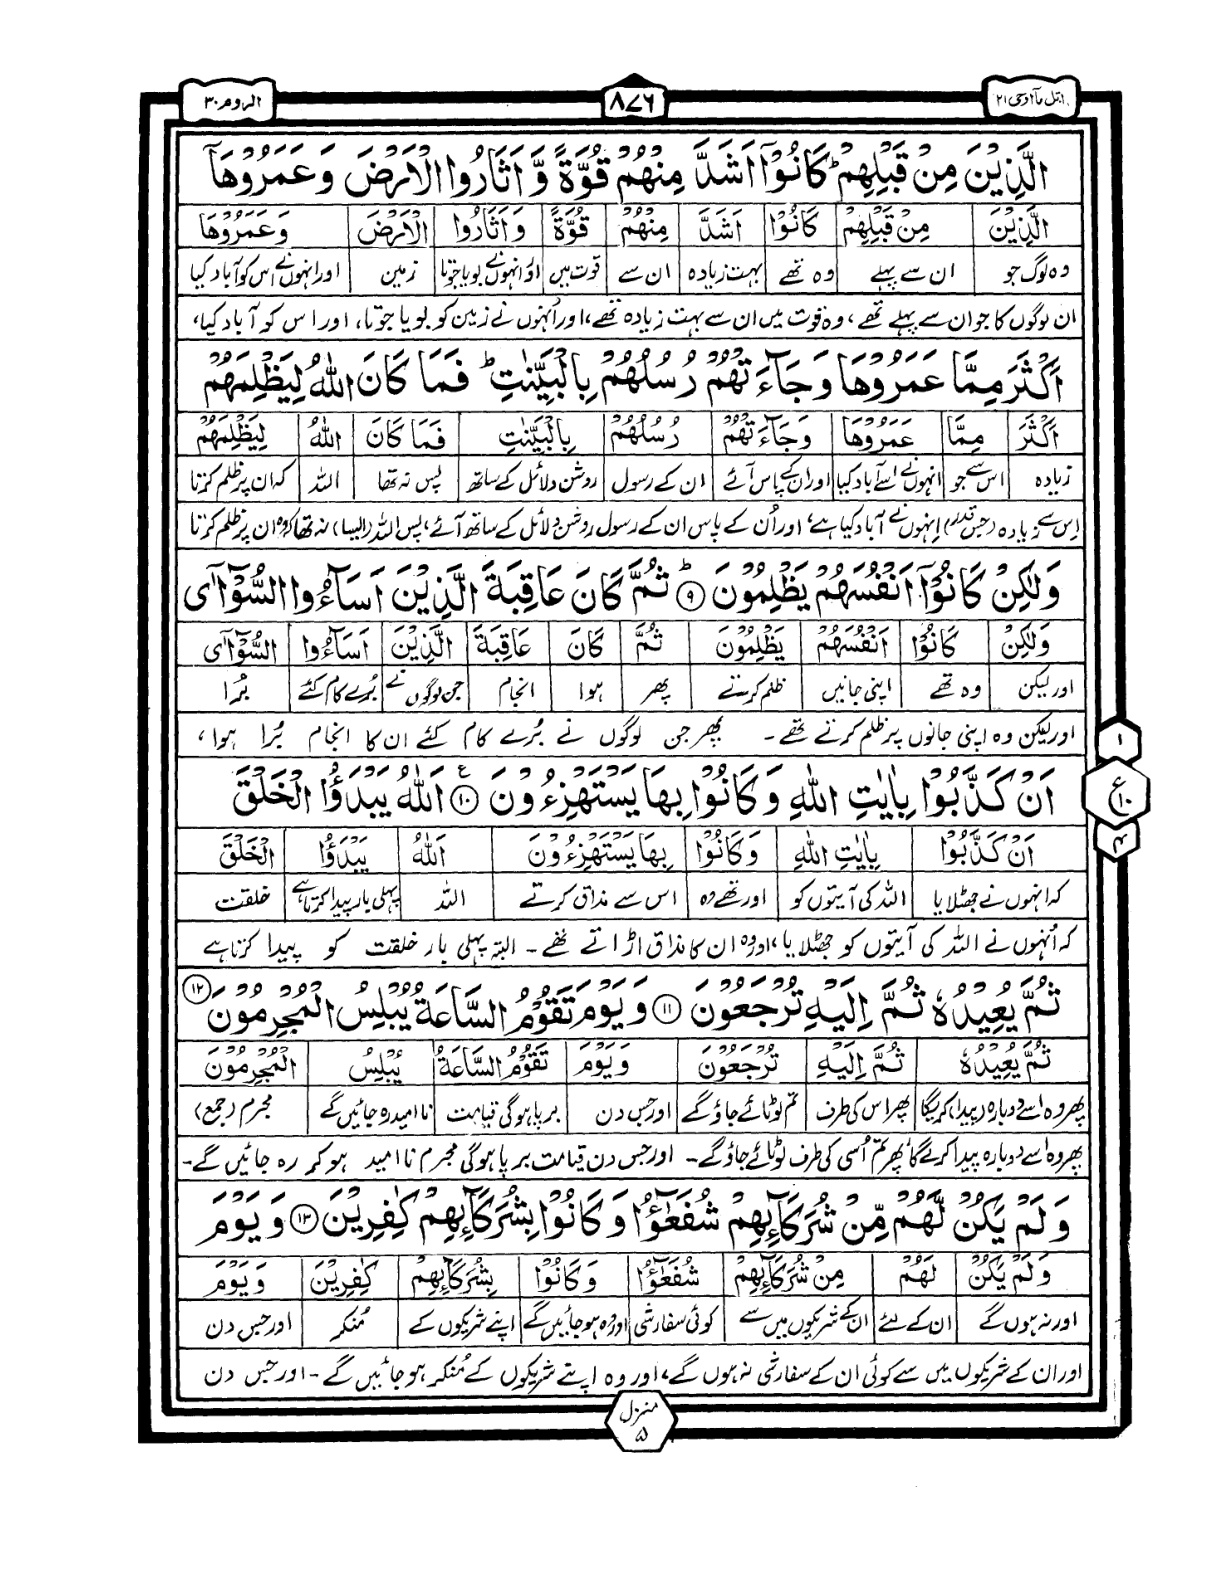 اتل مآ اوحی ۲۱
۸۷۶
الروم ۳۰
الَّذِيْنَ مِنْ قَبْلِهِمْ ؕ كَانُوْۤا اَشَدَّ مِنْهُمْ قُوَّةً وَّ اَثَارُوا الْاَرْضَ وَ عَمَرُوْهَاۤ
الَّذِيْنَ مِنْ قَبْلِهِمْ كَانُوْۤا اَشَدَّ مِنْهُمْ قُوَّةً وَ اَثَارُوا الْاَرْضَ وَ عَمَرُوْهَا
وہ لوگ جو ان سے پہلے وہ تھے بہت زیادہ ان سے قوت میں اور انہوں نے بویا جوتا زمین اور انہوں نے اس کو آباد کیا
ان لوگوں کا جو ان سے پہلے تھے، وہ قوت میں ان سے بہت زیادہ تھے، اور اُنہوں نے زمین کو بویا جوتا، اور اس کو آباد کیا،
اَكْثَرَ مِمَّا عَمَرُوْهَا وَ جَآءَتْهُمْ رُسُلُهُمْ بِالْبَيِّنٰتِ ؕ فَمَا كَانَ اللّٰهُ لِيَظْلِمَهُمْ
اَكْثَرَ مِمَّا عَمَرُوْهَا وَ جَآءَتْهُمْ رُسُلُهُمْ بِالْبَيِّنٰتِ فَمَا كَانَ اللّٰهُ لِيَظْلِمَهُمْ
زیادہ اس سے جو انہوں نے اسے آباد کیا اور ان کے پاس آئے ان کے رسول روشن دلائل کے ساتھ پس نہ تھا اللہ کہ ان پر ظلم کرتا
اس سے زیادہ (جس قدر) انہوں نے آباد کیا ہے، اور اُن کے پاس ان کے رسول روشن دلائل کے ساتھ آئے، پس اللہ (ایسا) نہ تھا کہ وہ ان پر ظلم کرتا
وَ لٰكِنْ كَانُوْۤا اَنْفُسَهُمْ يَظْلِمُوْنَ ؕ ۹ ثُمَّ كَانَ عَاقِبَةَ الَّذِيْنَ اَسَآءُوا السُّوْٓاٰى
وَ لٰكِنْ كَانُوْۤا اَنْفُسَهُمْ يَظْلِمُوْنَ ثُمَّ كَانَ عَاقِبَةَ الَّذِيْنَ اَسَآءُوا السُّوْٓاٰى
اور لیکن وہ تھے اپنی جانیں ظلم کرتے پھر ہوا انجام جن لوگوں نے بُرے کام کئے بُرا
اور لیکن وہ اپنی جانوں پر ظلم کرتے تھے۔ پھر جن لوگوں نے بُرے کام کئے ان کا انجام بُرا ہوا،
اَنْ كَذَّبُوْا بِاٰيٰتِ اللّٰهِ وَ كَانُوْا بِهَا يَسْتَهْزِءُوْنَ ۧ ۱۰ اَللّٰهُ يَبْدَؤُا الْخَلْقَ
اَنْ كَذَّبُوْا بِاٰيٰتِ اللّٰهِ وَ كَانُوْا بِهَا يَسْتَهْزِءُوْنَ اَللّٰهُ يَبْدَؤُا الْخَلْقَ
کہ انہوں نے جھٹلایا اللہ کی آیتوں کو اور تھے وہ اس سے مذاق کرتے اللہ پہلی بار پیدا کرتا ہے خلقت
کہ اُنہوں نے اللہ کی آیتوں کو جھٹلایا، اور وہ ان کا مذاق اڑاتے تھے۔ اللہ پہلی بار خلقت کو پیدا کرتا ہے
ثُمَّ يُعِيْدُهٗ ثُمَّ اِلَيْهِ تُرْجَعُوْنَ ۱۱ وَ يَوْمَ تَقُوْمُ السَّاعَةُ يُبْلِسُ الْمُجْرِمُوْنَ ۱۲
ثُمَّ يُعِيْدُهٗ ثُمَّ اِلَيْهِ تُرْجَعُوْنَ وَ يَوْمَ تَقُوْمُ السَّاعَةُ يُبْلِسُ الْمُجْرِمُوْنَ
پھر وہ اسے دوبارہ (پیدا) کریگا پھر اس کی طرف تم لوٹائے جاؤ گے اور جس دن برپا ہوگی قیامت نا امید رہ جائیں گے مجرم (جمع)
پھر وہ اُسے دوبارہ پیدا کرے گا پھر تم اُسی کی طرف لوٹائے جاؤ گے۔ اور جس دن قیامت برپا ہوگی مجرم نا امید ہو کر رہ جائیں گے۔
وَ لَمْ يَكُنْ لَّهُمْ مِّنْ شُرَكَآئِهِمْ شُفَعٰٓؤُا وَ كَانُوْا بِشُرَكَآئِهِمْ كٰفِرِيْنَ ۱۳ وَ يَوْمَ
وَ لَمْ يَكُنْ لَهُمْ مِنْ شُرَكَآئِهِمْ شُفَعٰٓؤُا وَ كَانُوْا بِشُرَكَآئِهِمْ كٰفِرِيْنَ وَ يَوْمَ
اور نہ ہوں گے ان کے لئے ان کے شریکوں میں سے کوئی سفارشی اور وہ ہو جائیں گے اپنے شریکوں کے مُنکر اور جس دن
اور ان کے شریکوں میں سے کوئی ان کے سفارشی نہ ہوں گے، اور وہ اپنے شریکوں کے مُنکر ہو جائیں گے۔ اور جس دن
۱
ع ۱۰
۴
منزل ۵